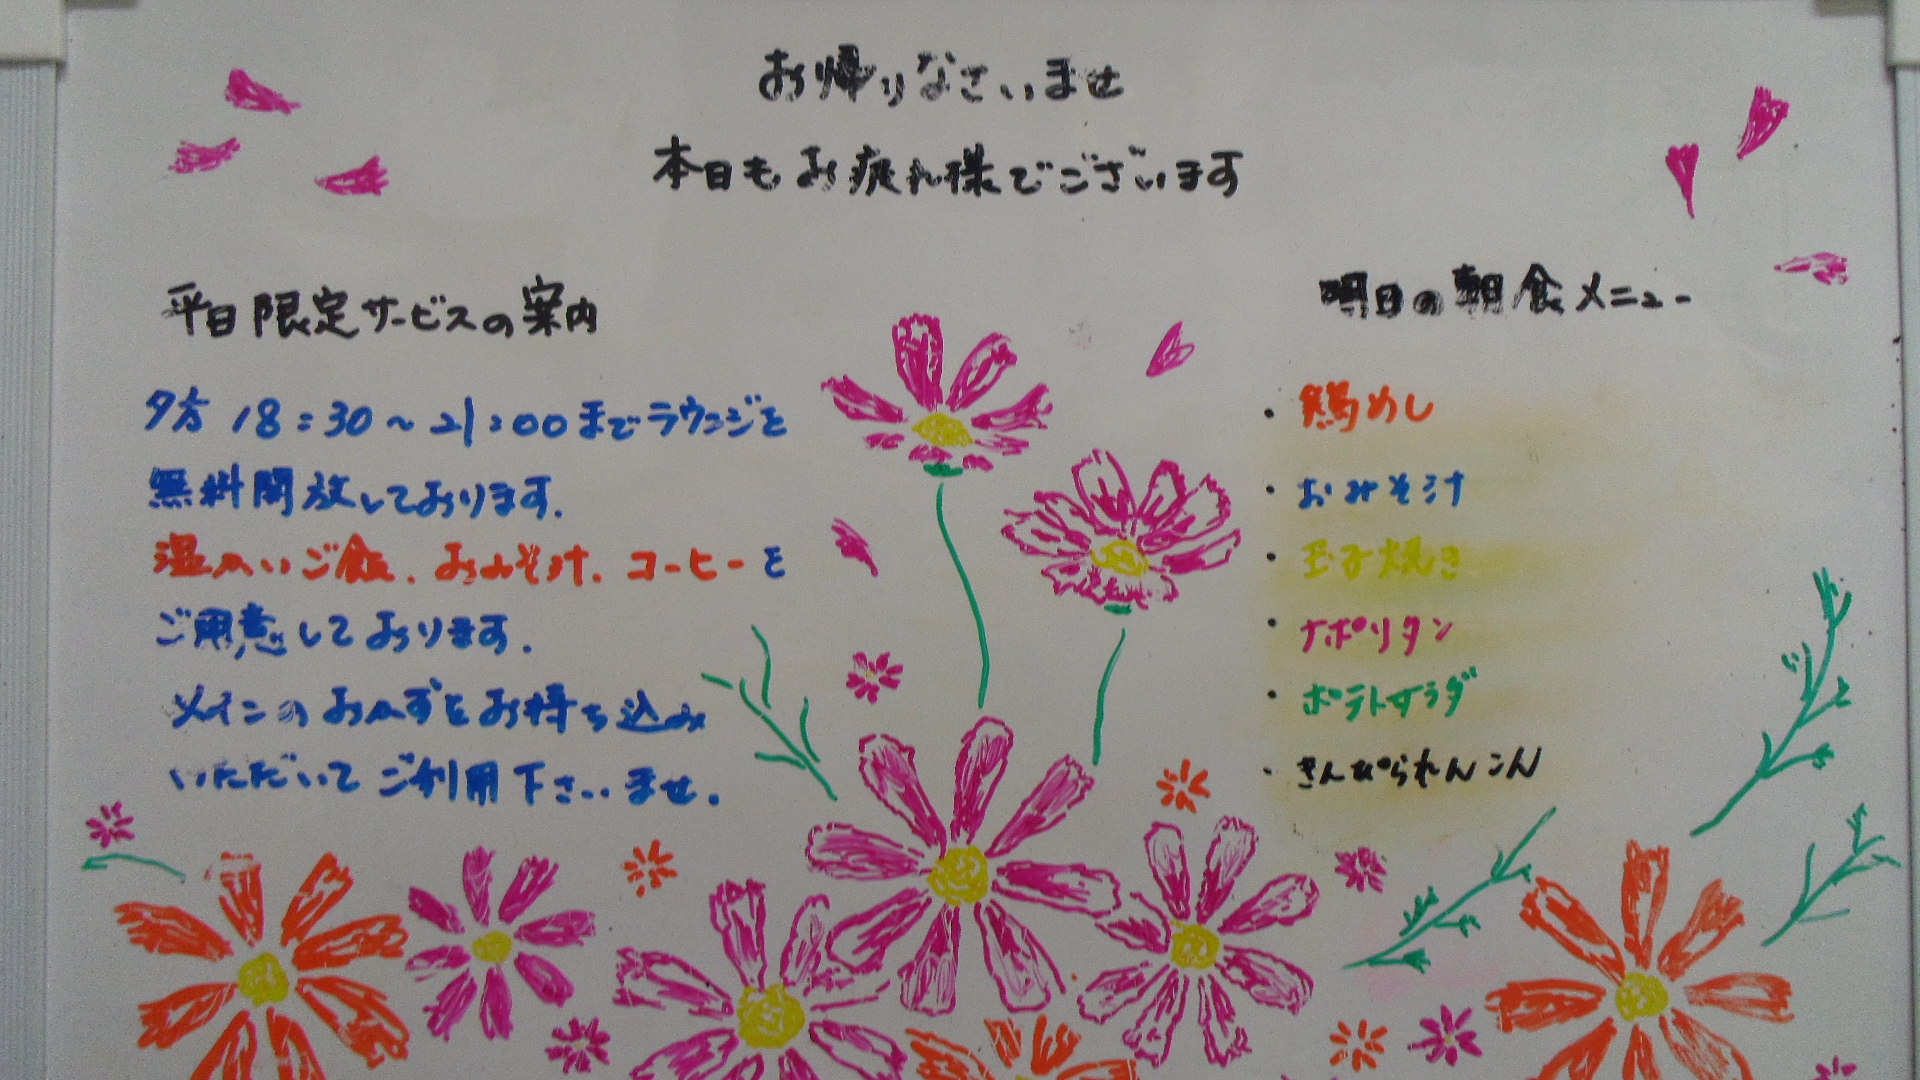 お帰りなさいませ
本日もお疲れ様でございます
平日限定サービスの案内
夕方 18:30～21:00までラウンジを
無料開放しております.
温かいご飯.おみそ汁.コーヒーを
ご用意しております.
メインのおかずをお持ち込み
いただいてご利用下さいませ.
明日の朝食メニュー
・鶏めし
・おみそ汁
・玉子焼き
・ナポリタン
・ポテトサラダ
・きんぴられんこん